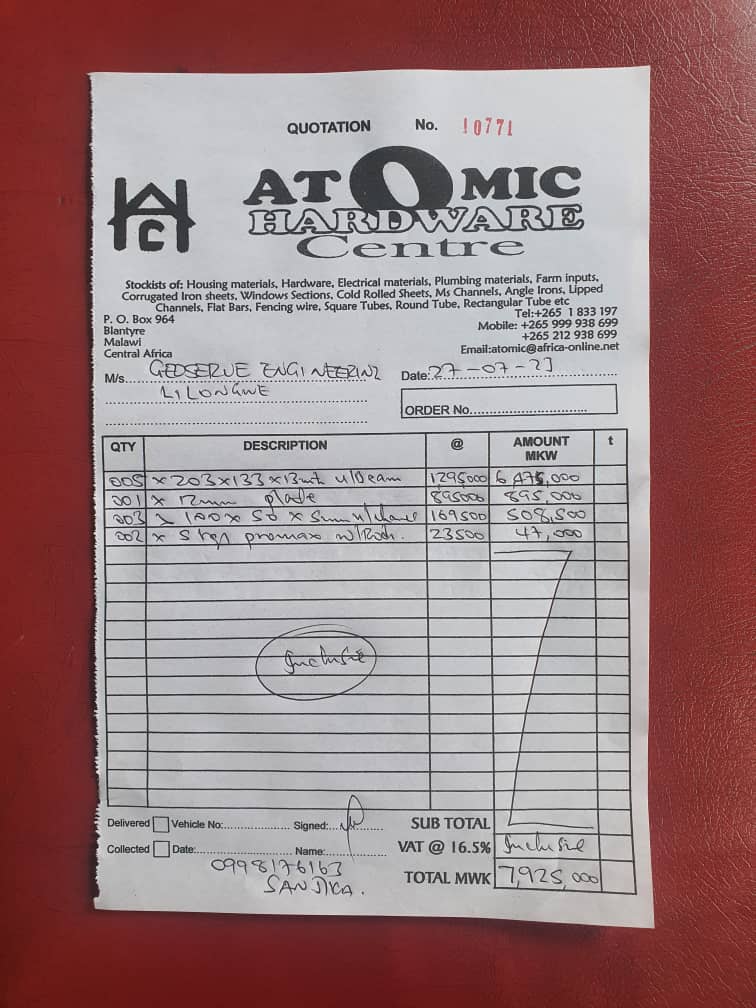 QUOTATION No. 10771
HC
ATOMIC
HARDWARE
Centre
Stockists of: Housing materials, Hardware, Electrical materials, Plumbing materials, Farm inputs,
Corrugated Iron sheets, Windows Sections, Cold Rolled Sheets, Ms Channels, Angle Irons, Lipped
Channels, Flat Bars, Fencing wire, Square Tubes, Round Tube, Rectangular Tube etc
P. O. Box 964
Blantyre
Malawi
Central Africa
Tel:+265 1 833 197
Mobile: +265 999 938 699
+265 212 938 699
Email:atomic@africa-online.net
M/s. GEOSERVE ENGINEERING
LILONGWE
Date: 27-07-23
ORDER No.
QTY DESCRIPTION @ AMOUNT MKW t
005 x 203x133x13mt 1295000 6 475,000
001 x 12mm plate 895000 895,000
003 x 100x50x5mm 169500 508,500
002 x 5kgs promax w/Rods. 23500 47,000
Inclusie
Delivered Vehicle No: Signed: SUB TOTAL
Collected Date: Name: VAT @ 16.5% Inclusie
0998176163
SANJIKA.
TOTAL MWK 7,925,000